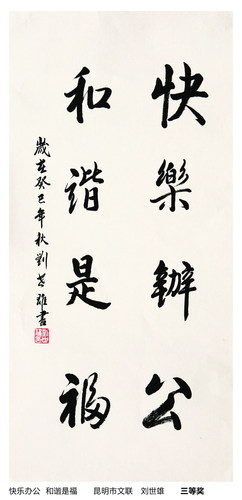 快樂辦公
和諧是福
歲在癸巳年秋劉世雄書
快乐办公 和谐是福 昆明市文联 刘世雄 三等奖